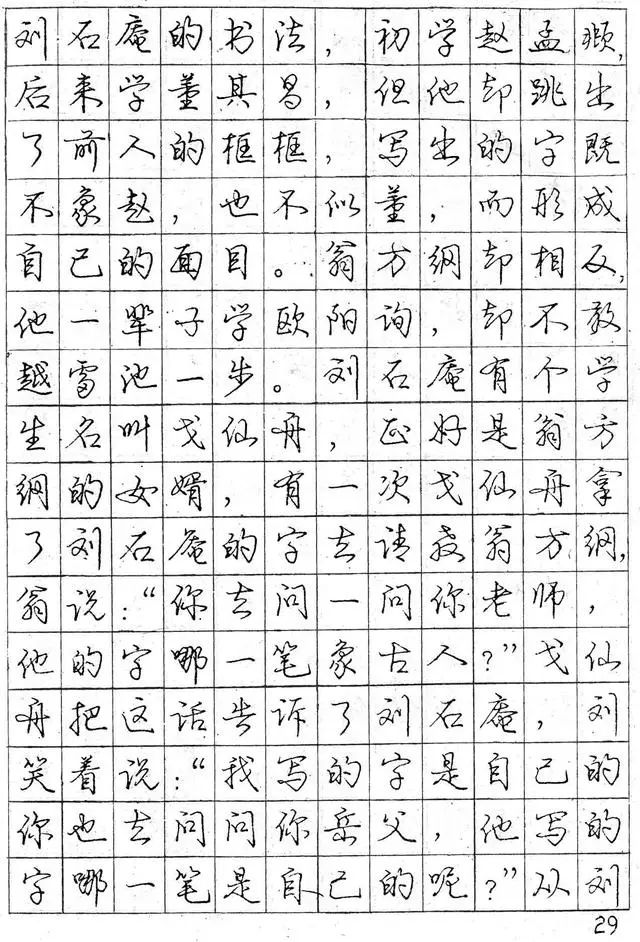 刘石庵的书法，初学赵孟頫，
后来学董其昌，但他却跳出
了前人的框框，写出的字既
不象赵，也不似董，而形成
自己的面目。翁方纲却相反，
他一辈子学欧阳询，却不敢
越雷池一步。刘石庵有个学
生名叫戈仙舟，正好是翁方
纲的女婿，有一次戈仙舟拿
了刘石庵的字去请教翁方纲，
翁说：“你去问一问你老师，
他的字哪一笔象古人？”戈仙
舟把这话告诉了刘石庵，刘
笑着说：“我写的字是自己的
你也去问问你岳父，他写的
字哪一笔是自己的呢？”从刘
29